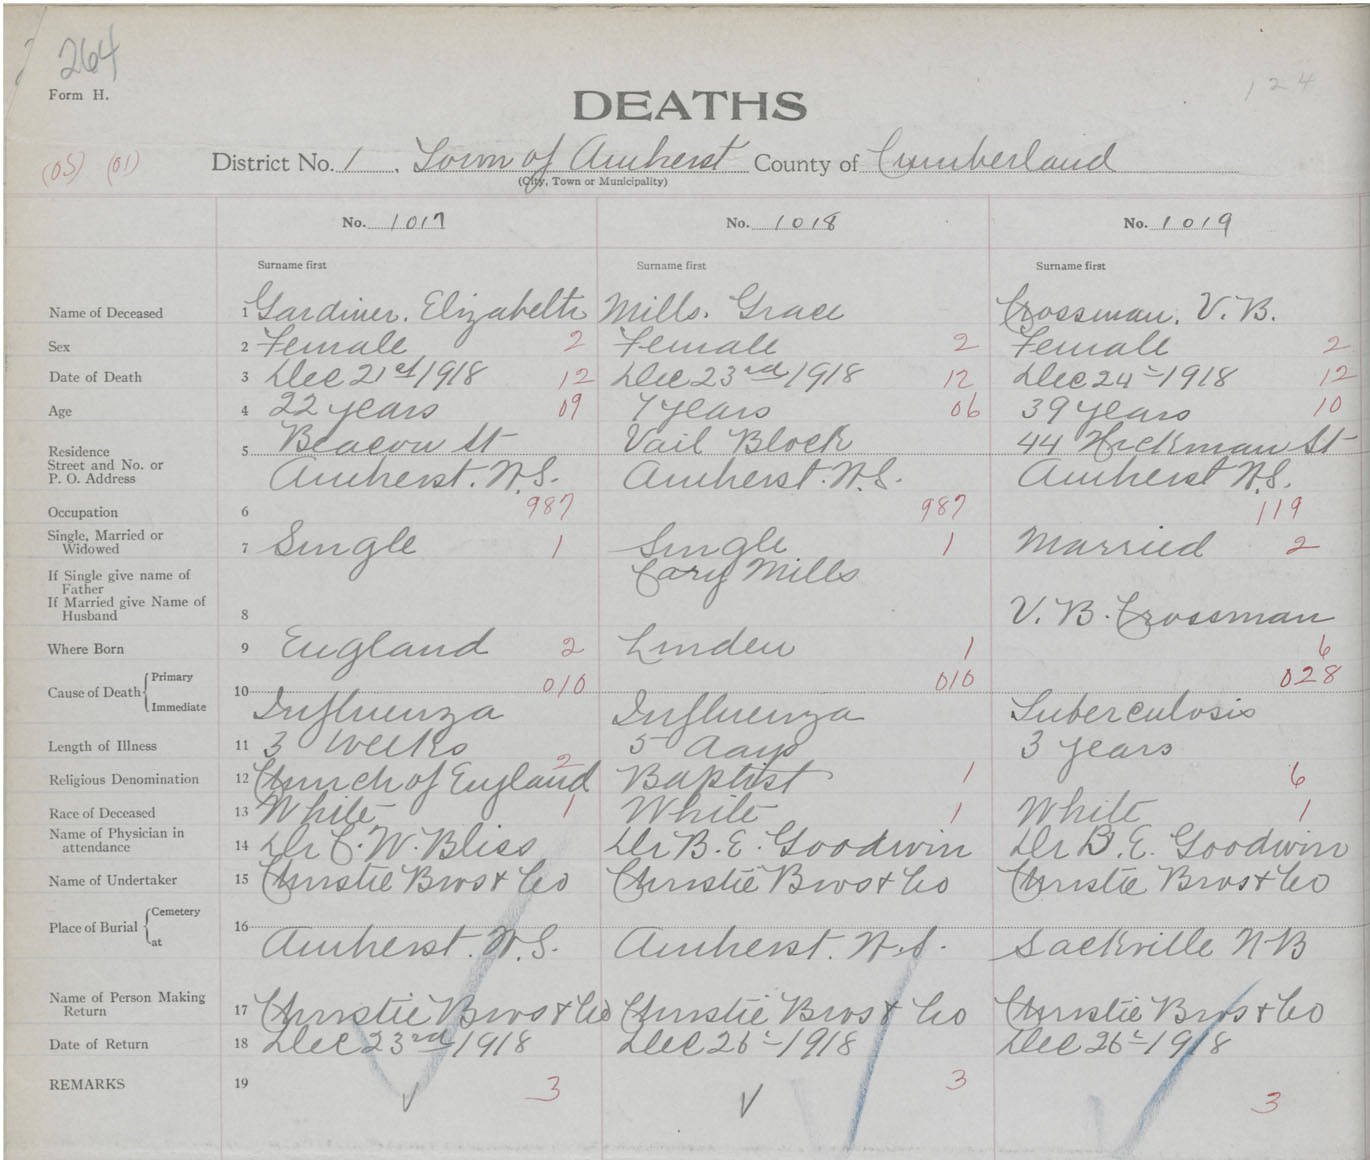 264
Form H.
124
DEATHS
(05) (01)
District No. 1, Town of Amherst County of Cumberland
(City, Town or Municipality)
No. 1017 No. 1018 No. 1019
Surname first Surname first Surname first
Name of Deceased 1 Gardiner. Elizabeth Mills. Grace Crossman. V. B.
Sex 2 Female 2 Female 2 Female 2
Date of Death 3 Dec 21st/1918 12 Dec 23rd/1918 12 Dec 24-1918 12
Age 4 22 years 09 7 years 06 39 years 10
Residence 5 Beacon St Vail Block 44 Hickman St
Street and No. or
P. O. Address Amherst. N.S. Amherst. N.S. Amherst N.S.
Occupation 6 987 987 119
Single, Married or
Widowed 7 Single 1 Single 1 Married 2
If Single give name of
Father Cary Mills
If Married give Name of
Husband 8 V. B. Crossman
Where Born 9 England 2 Linden 1 6
Cause of Death Primary 10 010 010 028
Immediate Influenza Influenza Tuberculosis
Length of Illness 11 3 weeks 5 days 3 years
Religious Denomination 12 Church of England 2 Baptist 1 6
Race of Deceased 13 White 1 White 1 White 1
Name of Physician in
attendance 14 Dr C. W. Bliss Dr B. E. Goodwin Dr B. E. Goodwin
Name of Undertaker 15 Christie Bros & Co Christie Bros & Co Christie Bros & Co
Place of Burial Cemetery 16
at Amherst. N.S. Amherst. N.S. Sackville N-B
Name of Person Making
Return 17 Christie Bros & Co Christie Bros & Co Christie Bros & Co
Date of Return 18 Dec 23rd-1918 Dec 26-1918 Dec 26-1918
REMARKS 19 3 3 3